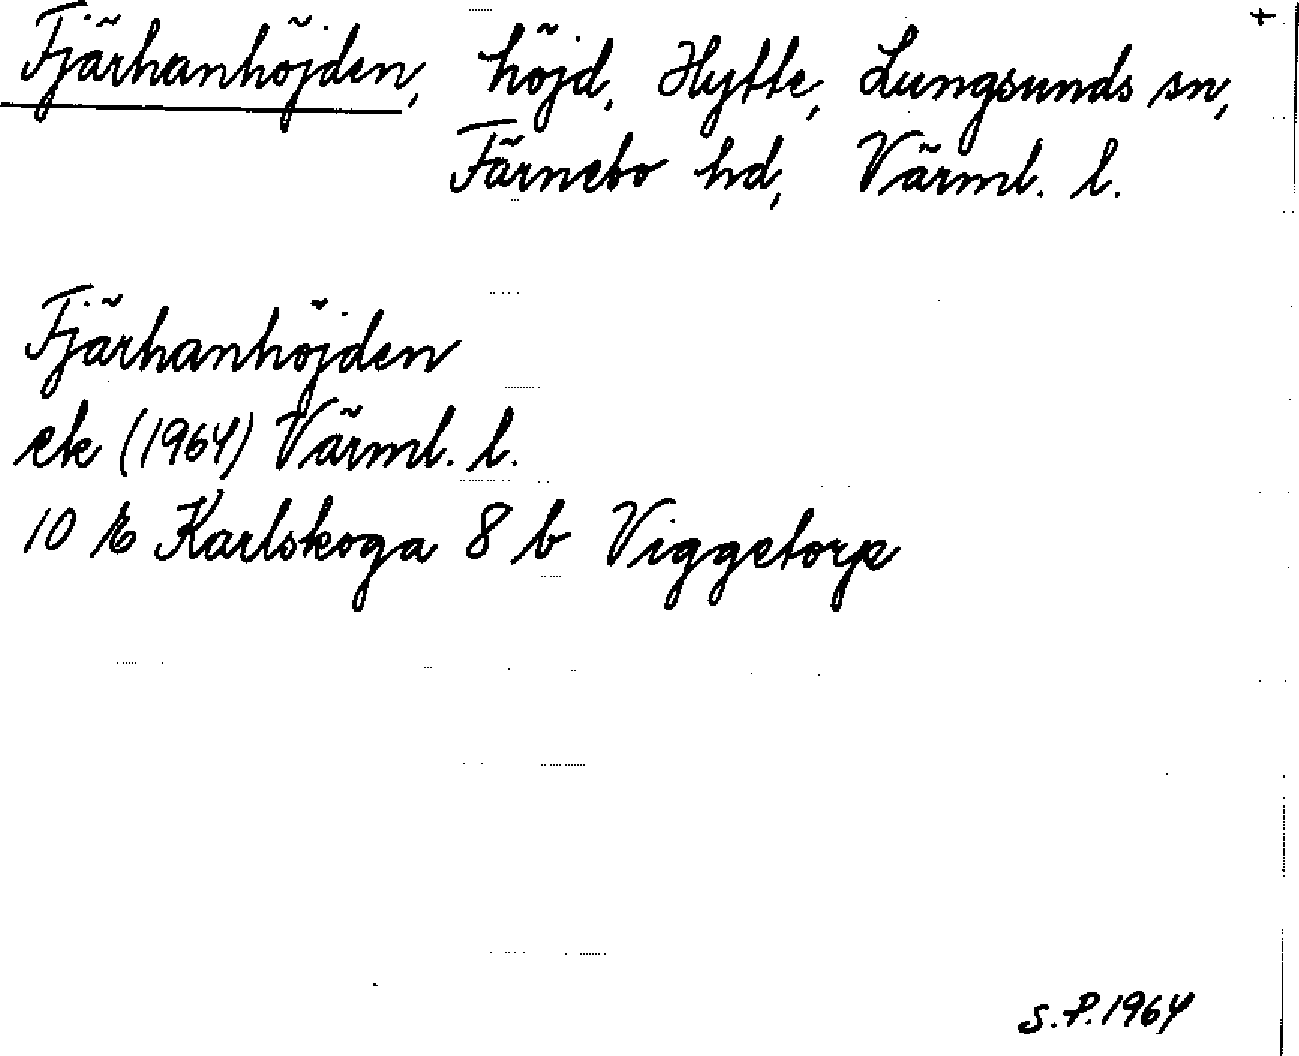 Fjärhanhöjden, höjd, Hytte, Lungsunds sn, +
Färnebo hd, Värml. l.
Fjärhanhöjden
ek (1964) Värml. l.
10 E Karlskoga 8 b Viggetorp
S.P. 1964